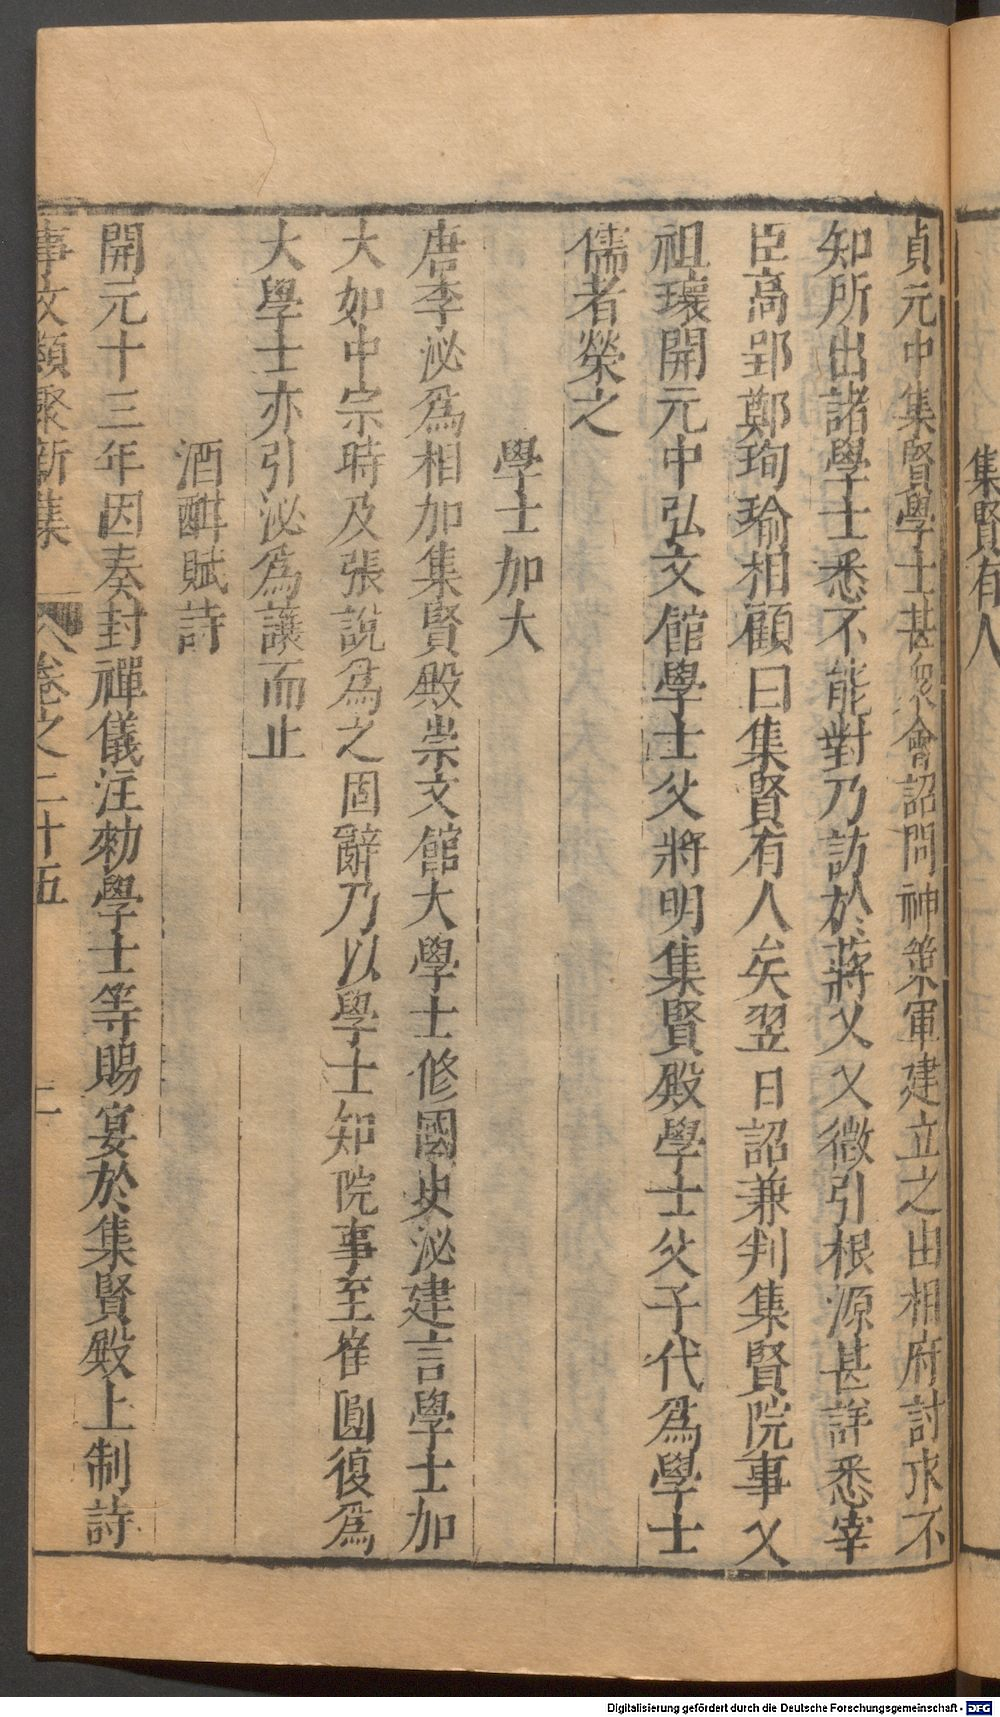 集賢有人
貞元中集賢學士甚衆會詔問神策軍建立之由相府討求不
知所出諸學士悉不能對乃訪於蔣乂乂徵引根源甚詳悉宰
臣高郢鄭珣瑜相顧曰集賢有人矣翌日詔兼判集賢院事乂
祖瓌開元中弘文館學士父將明集賢殿學士父子代爲學士
儒者榮之
學士加大
唐李泌爲相加集賢殿崇文館大學士修國史泌建言學士加
大如中宗時及張說爲之固辭乃以學士知院事至崔圓復爲
大學士亦引泌爲讓而止
酒酣賦詩
開元十三年因奏封禪儀注勑學士等賜宴於集賢殿上制詩
事文類聚新集 卷之二十五 二
Digitalisierung gefördert durch die Deutsche Forschungsgemeinschaft - DFG